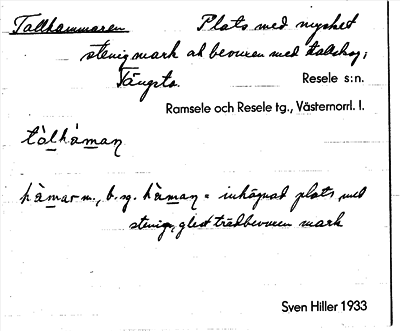 Tallhammaren Plats med mycket
stenig mark ak bevuxen med tallskog;
Tångsta. Resele s:n.
Ramsele och Resele tg., Västernorrl. l.
tàlhàman
hàmar m., b. sg. hàman = inhägnad plats med
stenig, glest trädbevuxen mark
Sven Hiller 1933